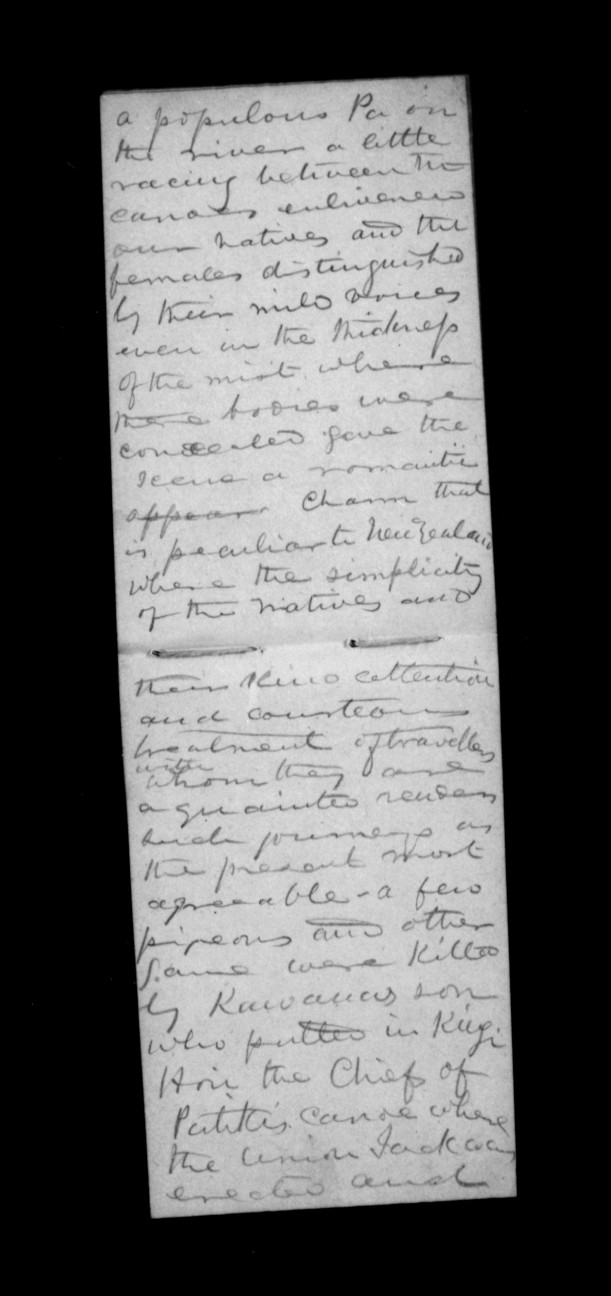 a populous Pa on
the river a little
racing between the
canoes enlivened
our natives and the
females distinguished
by their mild voices
even in the thickness
of the mist where
there bodies were
concealed gave the
scene a romantic
appear. charm that
is peculiar to New Zealand
where the simplicity
of the natives and
their kind attention
and courteous
treatment of travellers
with
whom they are
aquainted renders
such journeys as
the present most
agreeable - a few
pigeons and other
game were killed
by Kawanas son
who putted in Kingi
Hori the Chief of
Patitis canoe where
the Union Jack was
erected and